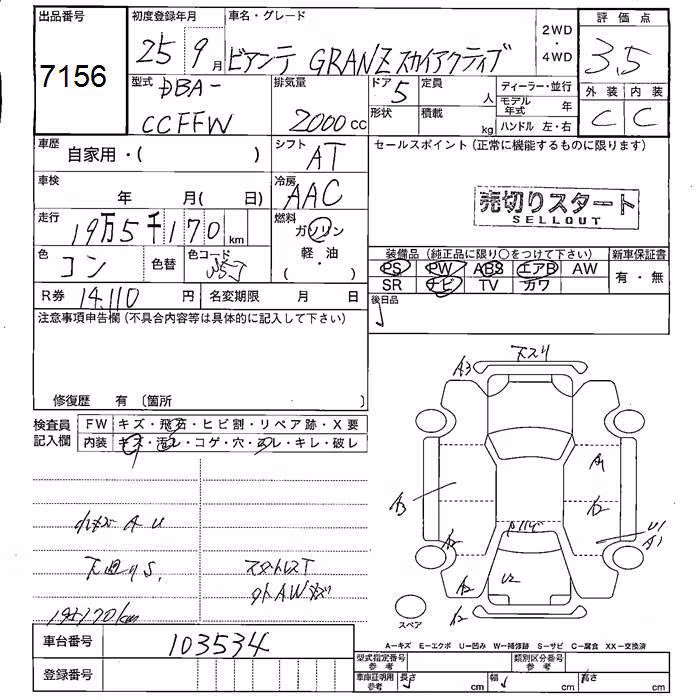 出品番号
7156
初度登録年月
25 9月
車名・グレード
ビアンテ GRANZ スカイアクティブ
2WD
・
4WD
評価点
3,5
外装 内装
C C
型式
DBA-
CCFFW
排気量
2000cc
ドア 5
形状
定員 人
積載 kg
ディーラー・並行
モデル年式 年
ハンドル 左・右
車歴
自家用・( )
シフト
AT
セールスポイント(正常に機能するものに限ります)
売切りスタート
SELLOUT
車検
年 月( 日)
冷房
AAC
走行
19万5千170km
燃料
ガソリン
軽・油
( )
色
コン
色替
色コード
装備品(純正品に限り○をつけて下さい)
新車保証書
PS PW ABS エアB AW
有・無
SR ナビ TV カワ
R券 14,110円
名変期限 月 日
後日品
注意事項申告欄(不具合内容等は具体的に記入して下さい)
修復歴 有 〔箇所 〕
検査員
記入欄
FW キズ・飛石・ヒビ割・リペア跡・X要
内装 キズ・汚レ・コゲ・穴・スレ・キレ・破レ
A U
下廻りS,
スタットレスT
AW
195170km
A3
下スリ
A1
A3
A2
A2
U1
A1
A2
U2
A2
スペア
A−キズ E−エクボ U−凹み W−補修跡 S−サビ C−腐食 XX−交換済
車台番号
103534
登録番号
型式指定番号
参考
類別区分番号
参考
車庫証明用
参考
長さ cm
幅 cm
高さ cm